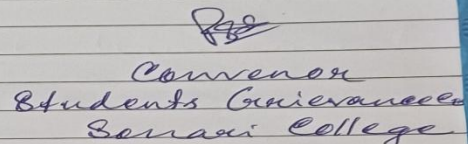 Convenor
Students Grievances
Sonari College